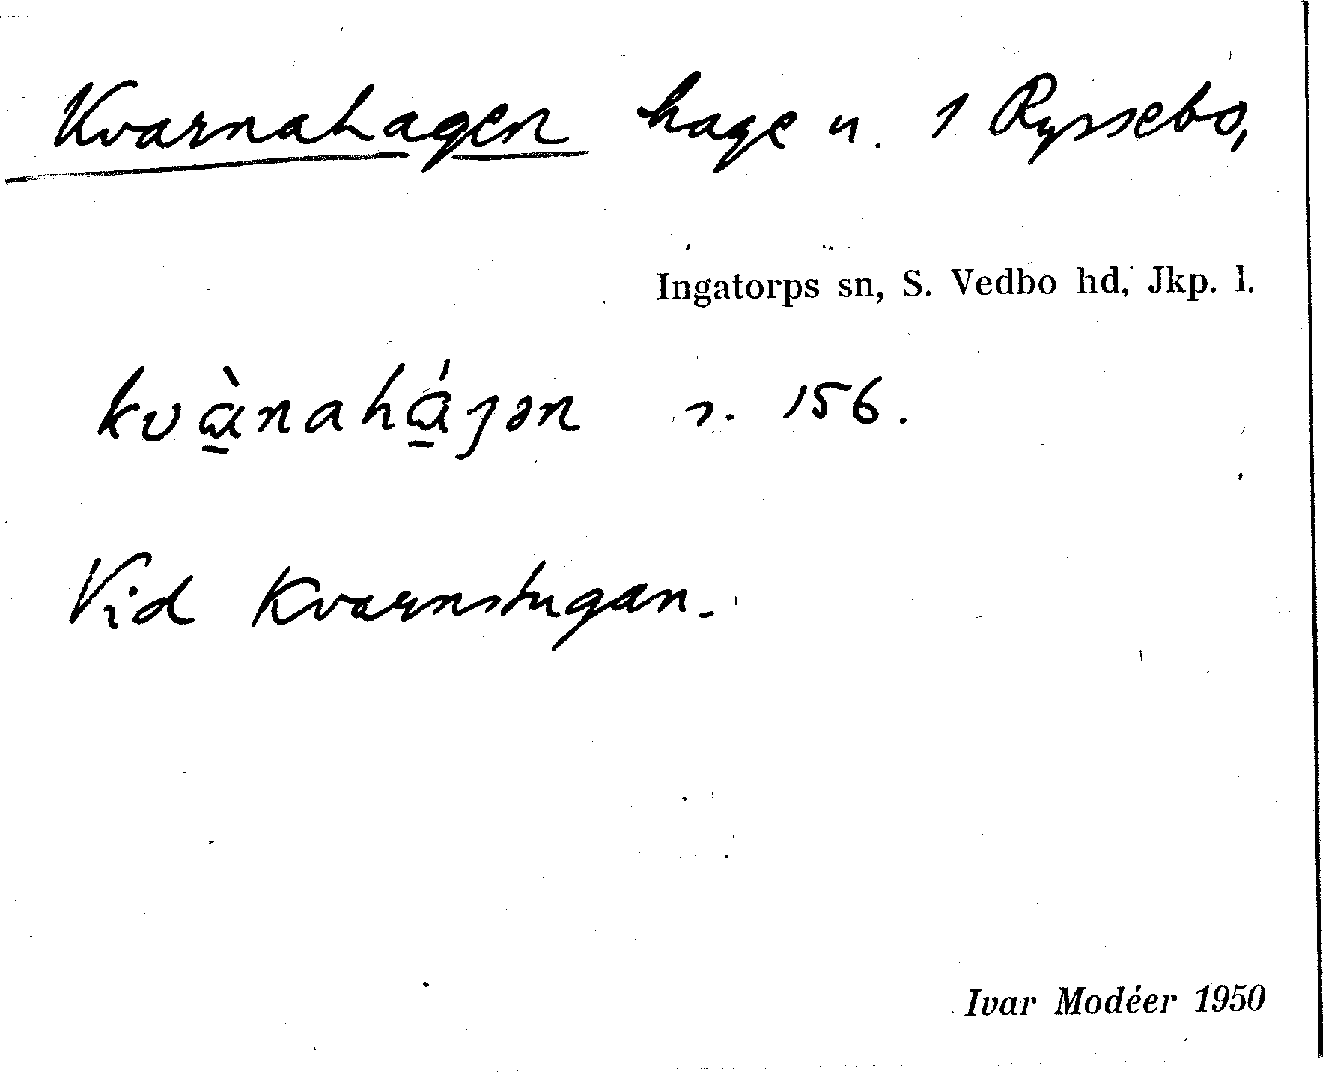 Kvarnahagen hage u. 1 Ryssebo,
Ingatorps sn, S. Vedbo hd, Jkp. l.
kvɑ̠̀nahɑ̠́gən s. 156.
Vid Kvarnstugan.
Ivar Modéer 1950